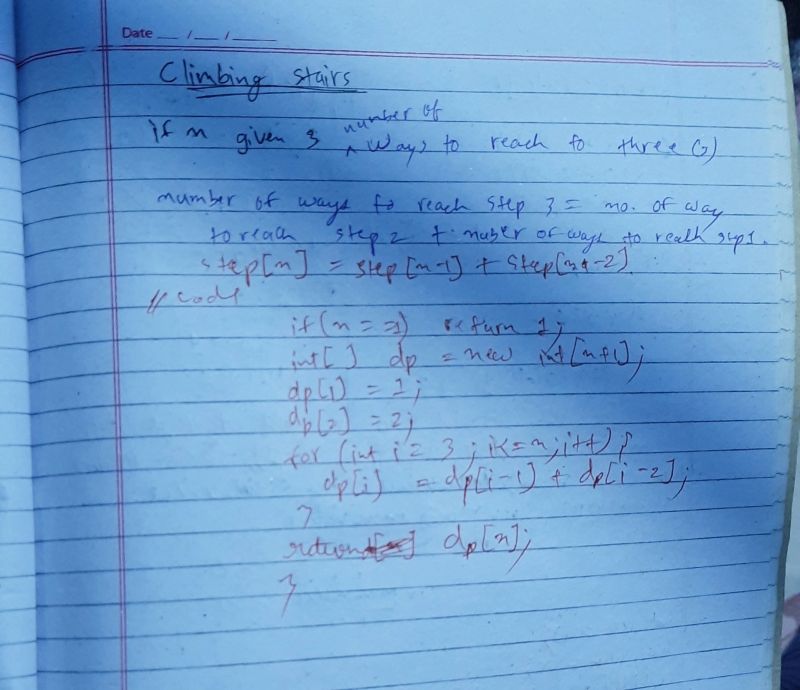 Date __/__/____
Climbing stairs
if n given 3 number of ways to reach to three (3)
number of ways to reach step 3 = no. of way
to reach step 2 + nuber of ways to reach step 1.
step[n] = step[n-1] + step[n-2]
// code
if(n==1) return 1;
int[] dp = new int[n+1];
dp[1] = 1;
dp[2] = 2;
for (int i = 3; i<=n; i++) {
dp[i] = dp[i-1] + dp[i-2];
}
return dp[n];
}